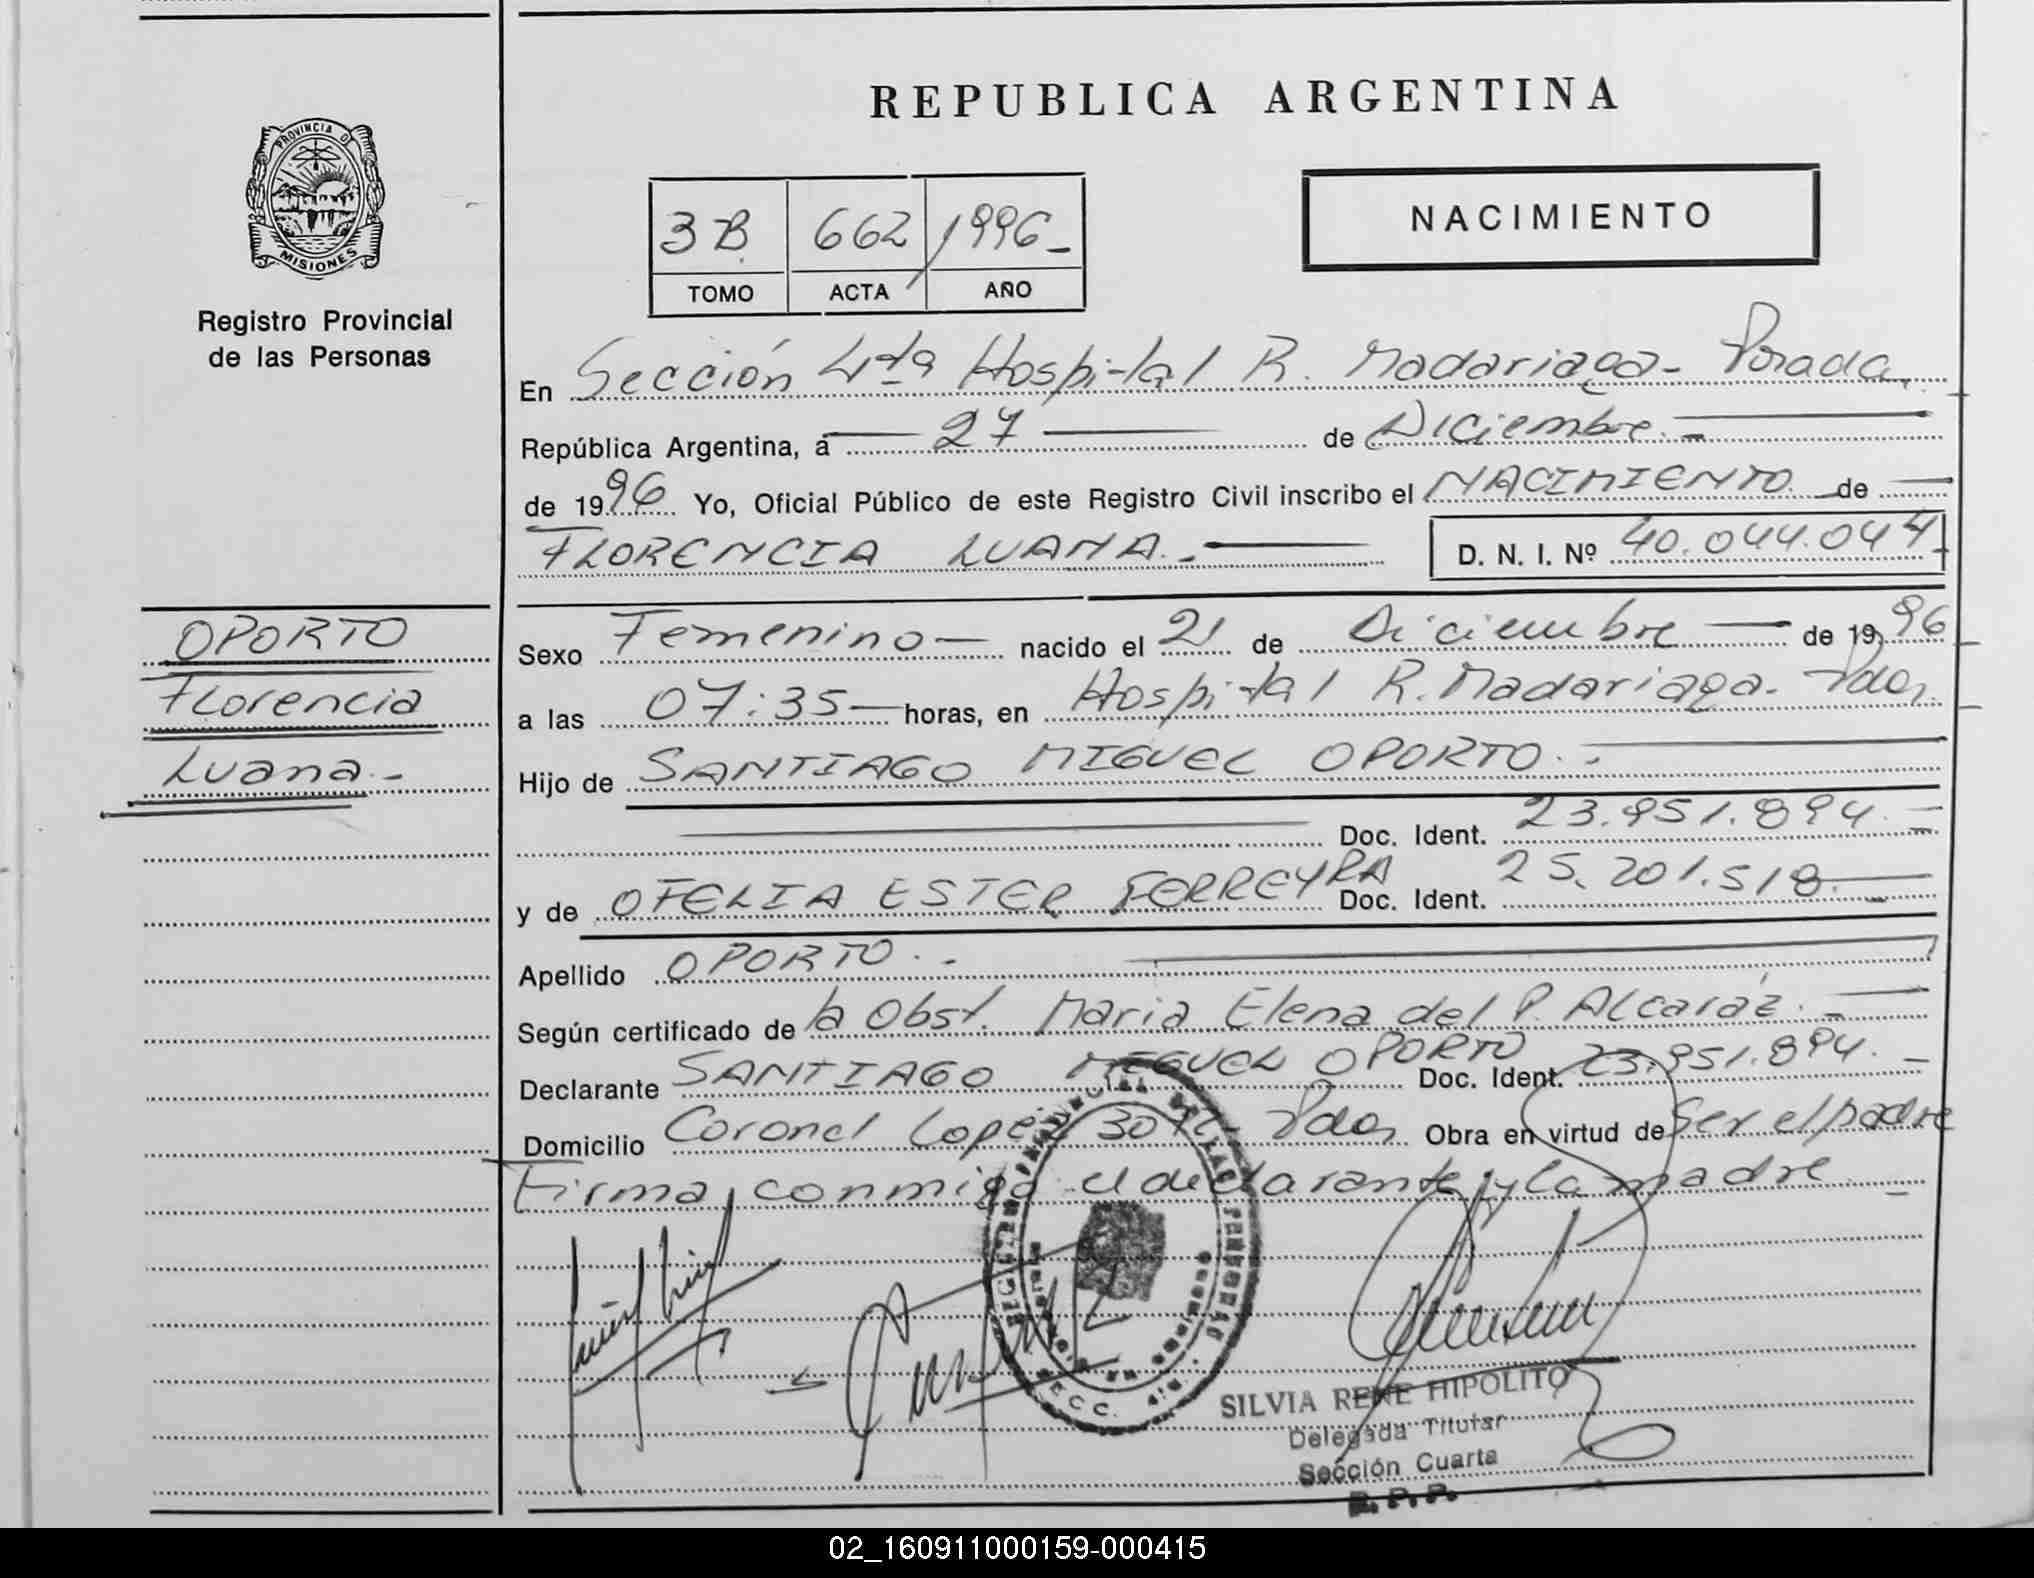 REPUBLICA ARGENTINA
PROVINCIA DE
MISIONES
Registro Provincial
de las Personas
3 B. 662 1996_
TOMO ACTA AÑO
NACIMIENTO
En Sección 4ta Hospital R. Madariaga - Posadas
República Argentina, a 27 de Diciembre.-
de 1996 Yo, Oficial Público de este Registro Civil inscribo el NACIMIENTO de
FLORENCIA LUANA.- D. N. I. Nº 40.044.044
OPORTO
Florencia
Luana.-
Sexo Femenino nacido el 21 de Diciembre de 1996
a las 07:35 horas, en Hospital R. Madariaga - Pdas.
Hijo de SANTIAGO MIGUEL OPORTO.-
Doc. Ident. 23.951.894.-
y de OFELIA ESTER FERREYRA Doc. Ident. 25.201.518.-
Apellido OPORTO.-
Según certificado de la Obst. Maria Elena del P. Alcaráz.-
Declarante SANTIAGO MIGUEL OPORTO Doc. Ident. 23.951.894.-
Domicilio Coronel Lopez Pdas. Obra en virtud de Ser el padre
Firma, conmigo el declarante y la madre.-
SECC. 4ta.
SILVIA RENE HIPOLITO
Delegada Titular
Sección Cuarta
R. P. P.
02_160911000159-000415